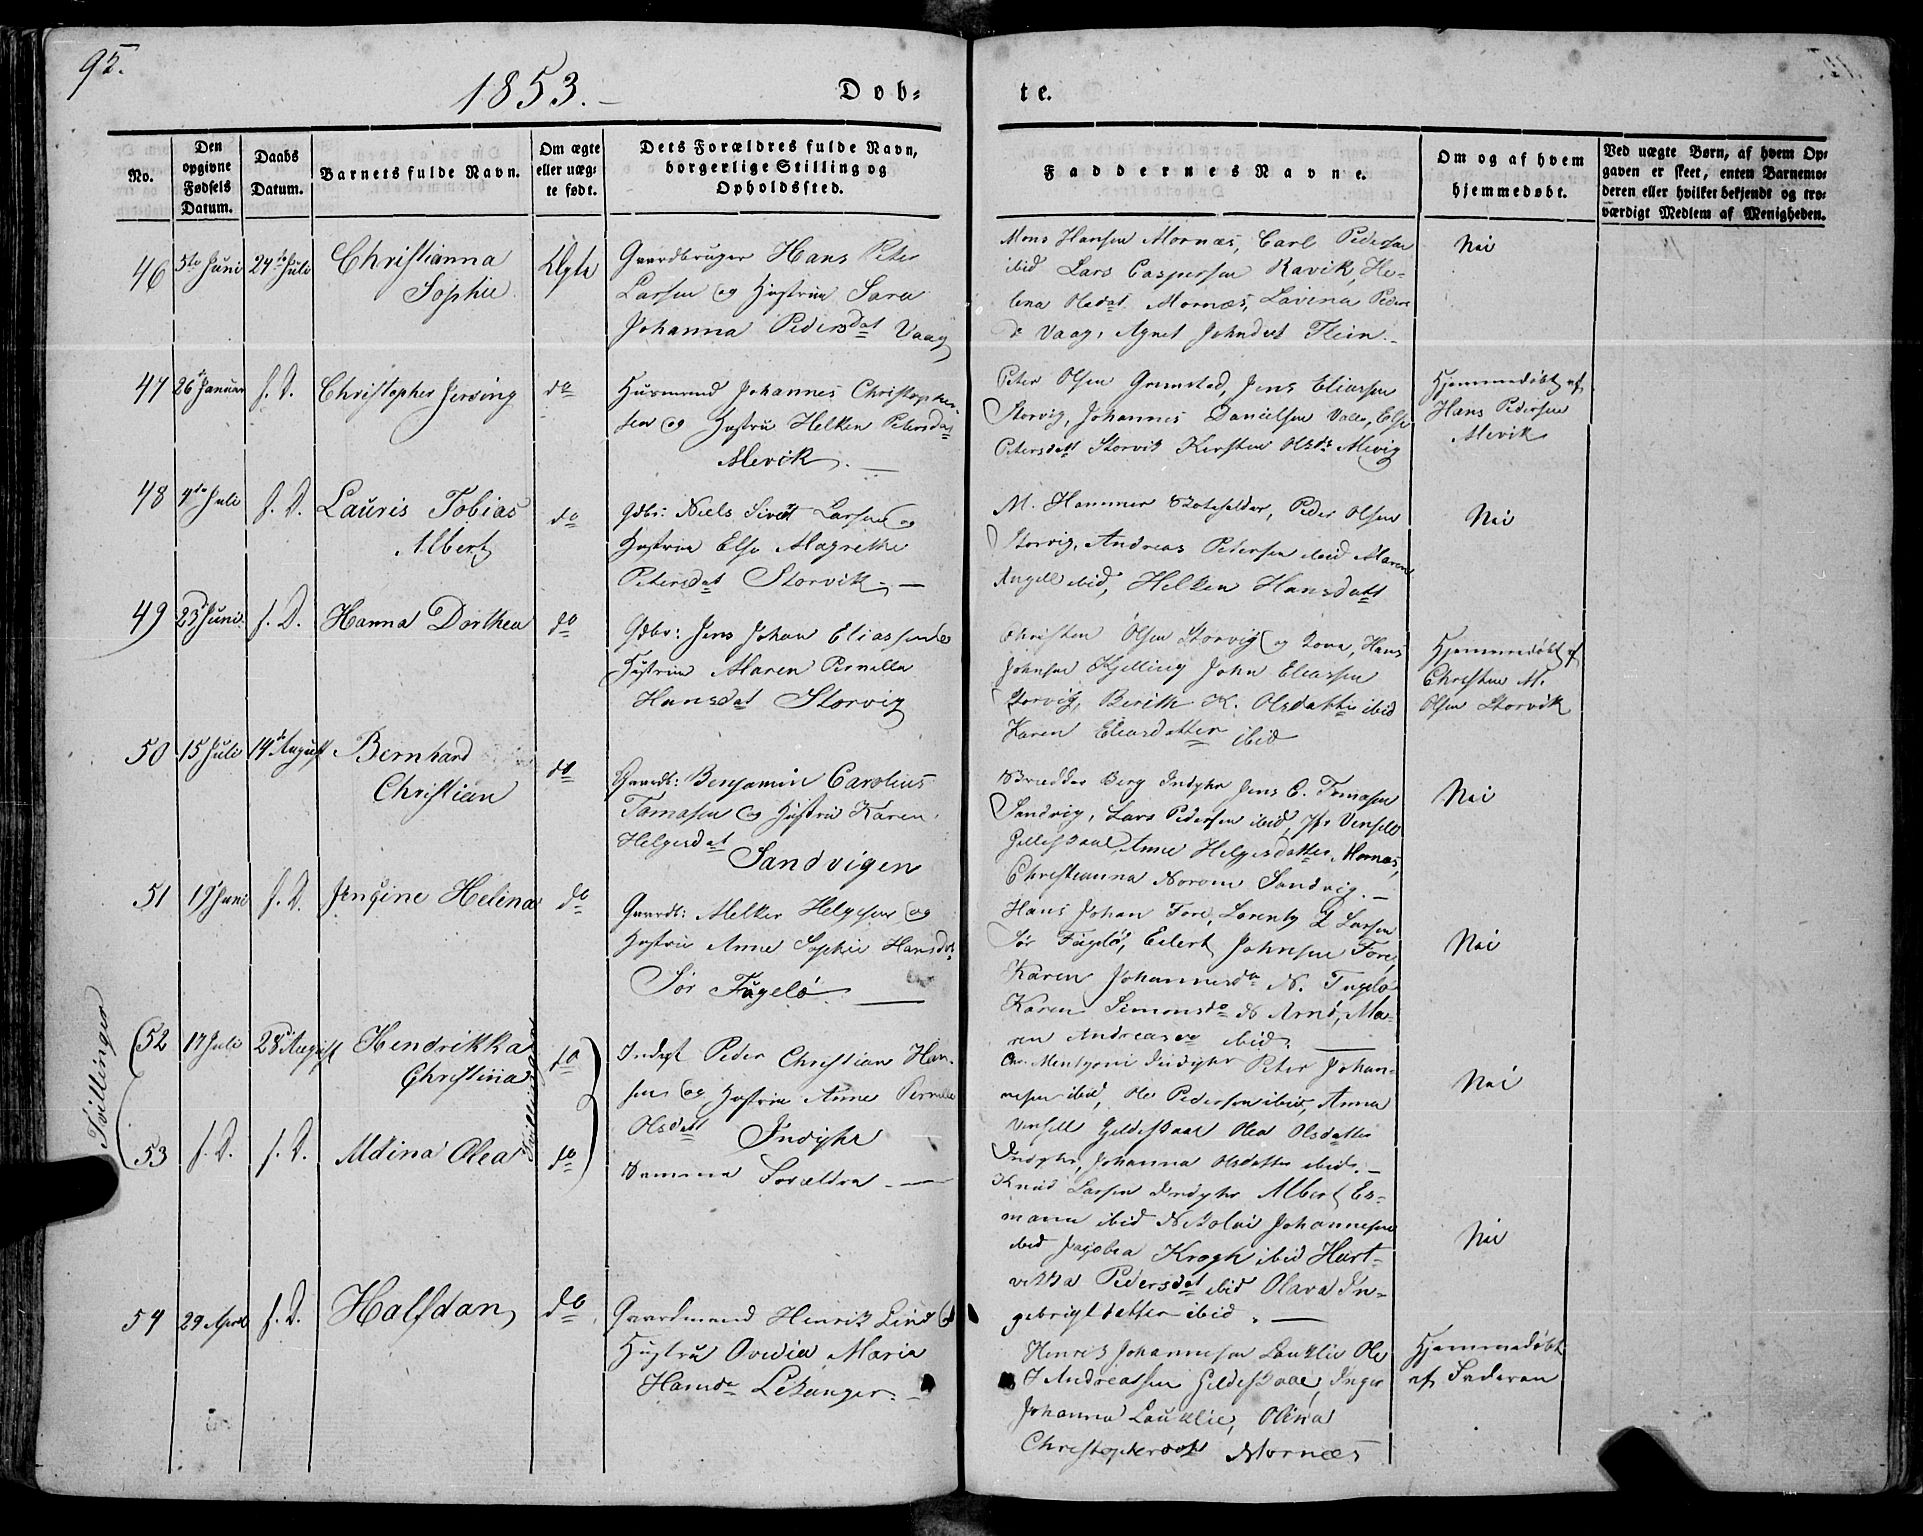 95.
1853.
Døb-
te.
No.
Den opgivne Fødsels Datum.
Daabs Datum.
Barnets fulde Navn.
Om ægte eller uægte født.
Dets Forældres fulde Navn, borgerlige Stilling og Opholdssted.
Faddernes Navne.
Om og af hvem hjemmedøbt.
Ved uægte Børn, af hvem Opgaven er skeet, enten Barnemoderen eller hvilket bekjendt og troværdigt Medlem af Menigheden.
46 5te Juni 24de Juli Christianna
Sophie
Ægte
Gaardbruger Hans Peter
Larsen og Hustrue Sara
Johanna Pedersdat Vaag
Mons Hansen Mornæs, Carl Pedersen
ibid Lars Caspersen Ravik, He-
lena Olsdat Mornæs, Lavina Peders
d Vaag, Agnet Johnsdat Flein.
Nei
47 26 Januar s. D. Christopher Jerving
do
Huusmand Johannes Christopher-
sen og Hustru Helken Petersdat
Alevik.
Peter Olsen Grimstad, Jens Eliassen
Storvig, Johannes Danielsen Valle, Else
Petersdatt Storvik Kirsten Olsdr Alevig
Hjemmedøbt af
Hans Pedersen
Alevik
48 4de Juli s. D. Lauris Tobias
Albert
do
Gdbr: Niels Sivert Larsen og
Hustrue Else Magrethe
Petersdat Storvik.
M. Hammer Peder Olsen
Storvig, Andreas Pedersen ibid Maren
Angell ibid, Helken Hansdatt
Nei
49 23 Juni s. D. Hanna Dorthea
do
Gdbr: Jens Johan Eliassen
Hustrue Maren Pernella
Hansdat Storvig
Christen Olsen Storvig og Kone, Hans
Johnsen Kjelling John Eliassen
Storvig, Berith K. Olsdatter ibid
Karen Eliasdatter ibid
Hjemmedøbt af
Christen M.
Olsen Storvik
50 15 Juli 14de August Bernhard
Christian
do
Gaardb: Benjamin Carolius
Tomasen og Hustru Karen
Helgesdat Sandvigen
Berg Indyhr Jens C. Tomasen
Sandvig, Lars Pedersen ibid, Vensell
Gildeskaal, Anne Helgesdatter Mornæs,
Christianna Norom Sandvig.
Nei
51 19 Juni s. D. Jensine Helina
do
Gaardb: Melker Helgesen og
Hustrue Anne Sophie Hansdr
Sør Fugelø
Hans Johan Fore, Lorentz L Larsen
Sør Fugelø, Eilert Johnsen Fore,
Karen Johannesda N. Fugelø
Karen Simonsda N Arnø, Ma-
ren Andreasda ibid.
Nei
Tvillinger
52 17 Juli 28 August Hendrikka
Christina
Tvillinger
do
Indst Peder Christian Han-
sen og Hustrue Anne Pernella
Olsdat Indyhr
Chr. Mentzoni Indyhr Peter Johan-
nesen ibid, Ole Pedersen ibid, Anna
Vensell Gildeskaal Olea Olsdatter
Indyhr, Johanna Olsdatter ibid.
Nei
53 s. D. s. D. Aldina Olea
do
Samme Forældre
Knud Larsen Indyhr Albert Es-
mann ibid Nikolai Johannesen
ibid Jacobia Krogh ibid Hart-
vikka Pedersdat ibid Olava In-
gebrigtdatter ibid.
Nei
54 29 April s. D. Halfdan
do
Gaardmand Henrik Lind og
Hustru Ovedia Maria
Hansda Lekanger.
Henrik Johannesen Lauklie Ole
J Andreassen Gildeskaal, Inger
Johanna Lauklie, Olina
Christopherdat Mornæs
Hjemmedøbt
af Faderen